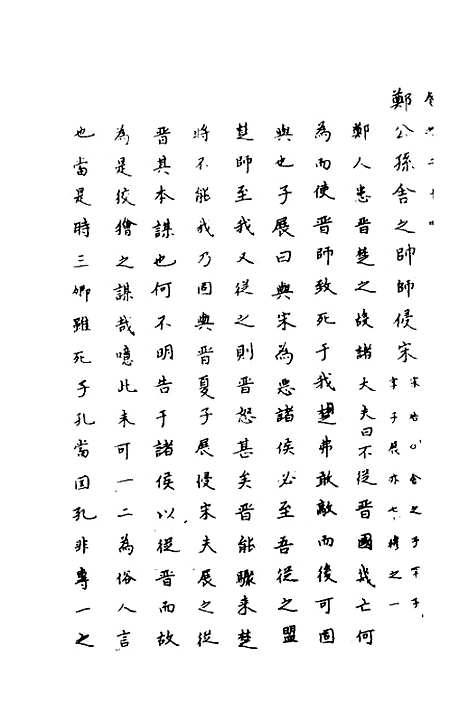 卷六二十四
鄭公孫舍之帥師侵宋
鄭人患晉楚之故諸大夫曰不從晉國幾亡何
為而使晉師致死于我楚弗敢敵而後可固
與也子展曰與宋為惡諸侯必至吾從之盟
楚師至我又從之則晉怒甚矣晉能驟來楚
將不能我乃固與晉夏子展侵宋夫展之從
晉其本謀也何不明告于諸侯以從晉而故
為是狡獪之謀哉噫此未可一二為俗人言
也當是時三卿雖死子孔當囯孔非專一之